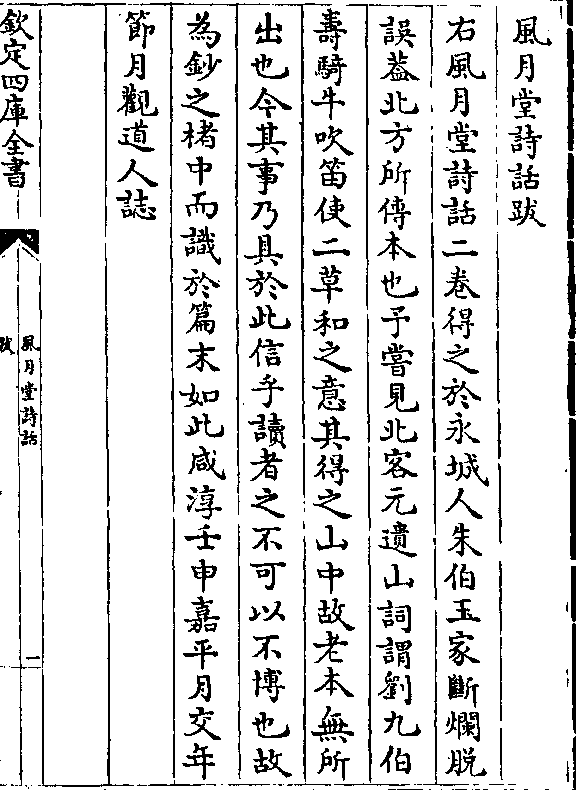 風月堂詩話跋
右風月堂詩話二卷得之於永城人朱伯玉家斷爛脱
誤葢北方所傳本也予嘗見北客元遺山詞謂劉九伯
壽騎牛吹笛使二草和之意其得之山中故老本無所
出也今其事乃具於此信乎讀者之不可以不博也故
為鈔之楮中而識於篇末如此咸淳壬申嘉平月交年
節月觀道人誌
欽定四庫全書
風月堂詩話
跋
一